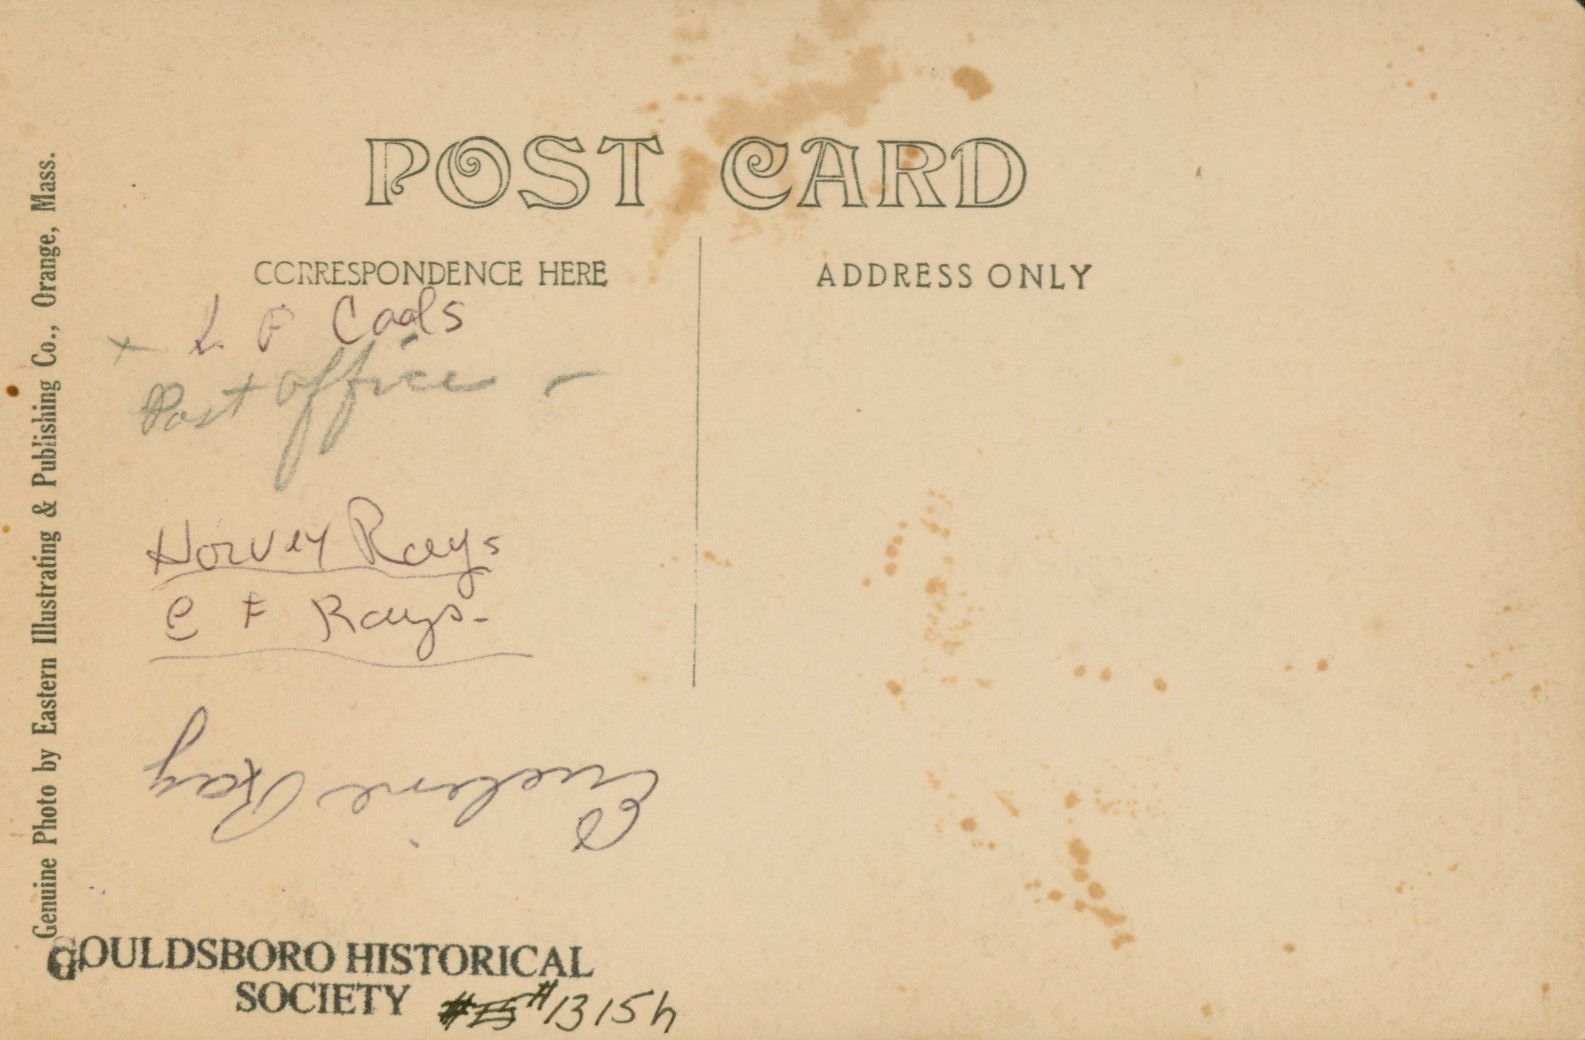 POST CARD
CORRESPONDENCE HERE
ADDRESS ONLY
L P Cools
+ Post office -
Horvey Rays
C F Rays-
Eveline Ray
Genuine Photo by Eastern Illustrating & Publishing Co., Orange, Mass.
GOULDSBORO HISTORICAL
SOCIETY #1315h